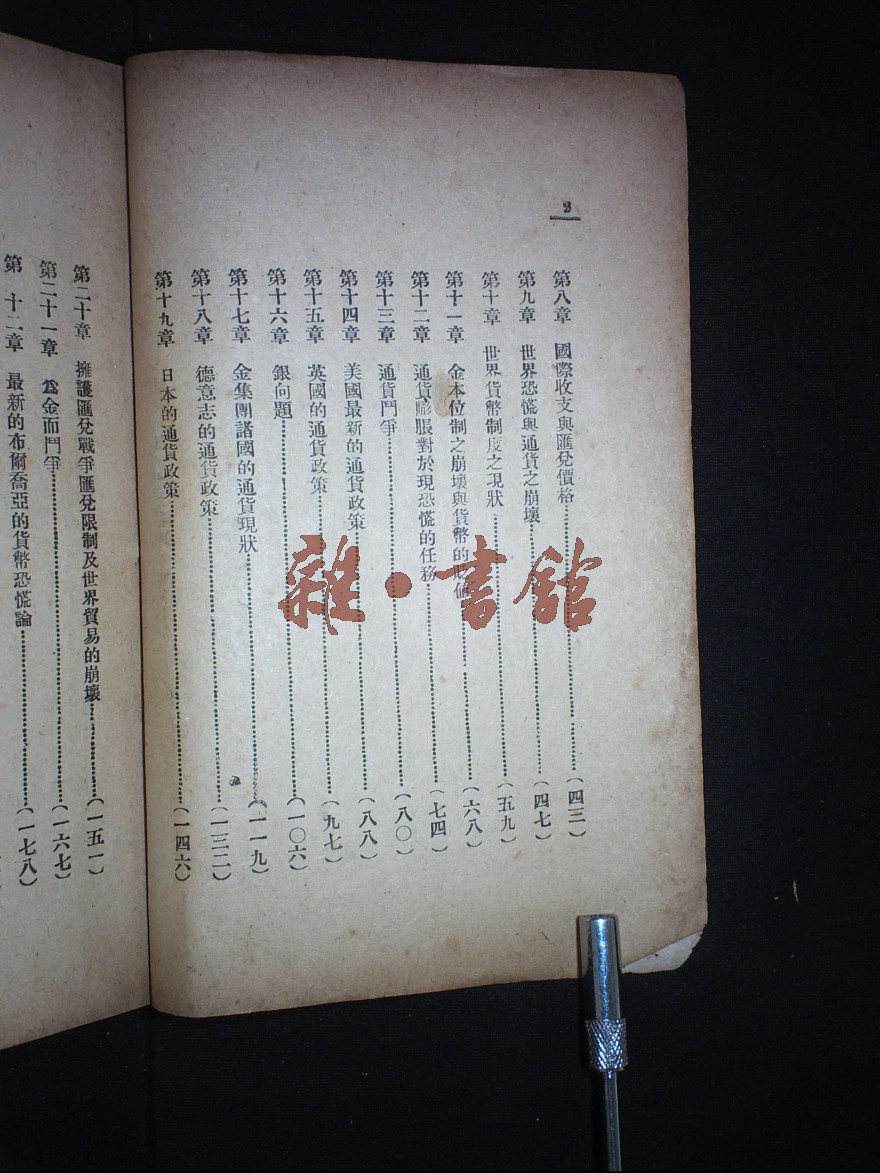 2
第八章 國際收支與匯兌價格………(四三)
第九章 世界恐慌與通貨之崩壞………(四七)
第十章 世界貨幣制度之現狀………(五九)
第十一章 金本位制之崩壞與貨幣的貶值………(六八)
第十二章 通貨膨脹對於現恐慌的任務………(七四)
第十三章 通貨鬥爭………(八〇)
第十四章 美國最新的通貨政策………(八八)
第十五章 英國的通貨政策………(九七)
第十六章 銀问題………(一〇六)
第十七章 金集團諸國的通貨現狀………(一一九)
第十八章 德意志的通貨政策………(一三二)
第十九章 日本的通貨政策………(一四六)
第二十章 擁護匯兌戰爭匯兌限制及世界貿易的崩壞………(一五一)
第二十一章 為金而鬥爭………(一六七)
第 十二章 最新的布爾喬亞的貨幣恐慌論………(一七八)
雜·書館